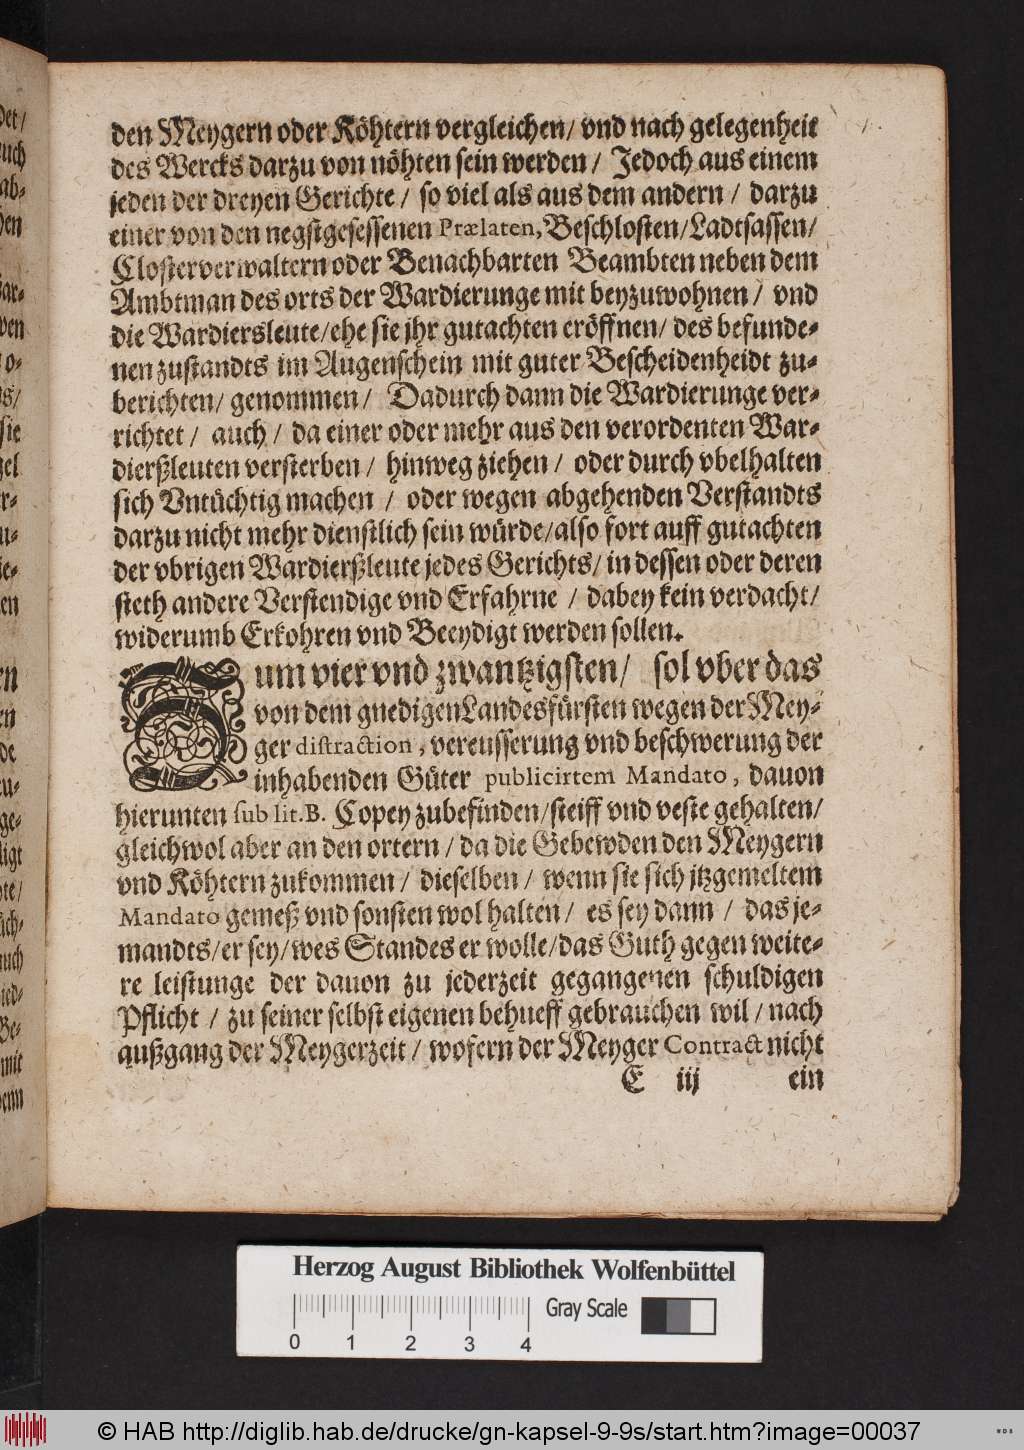 den Meygern oder Köhtern vergleichen/ vnd nach gelegenheit
des Wercks darzu von nöhten sein werden / Jedoch aus einem
jeden der dreyen Gerichte / so viel als aus dem andern / darzu
einer von den negstgesessenen Prælaten, Beschlosten/Ladtsassen/
Closterverwaltern oder Benachbarten Beambten neben dem
Ambtman des orts der Wardierunge mit beyzuwohnen / vnd
die Wardiersleute/ehe sie jhr gutachten eröffnen/ des befunde-
nen zustandts im Augenschein mit guter Bescheidenheidt zu-
berichten/ genommen / Dadurch dann die Wardierunge ver-
richtet / auch / da einer oder mehr aus den verordenten War-
dierßleuten versterben / hinweg ziehen / oder durch vbelhalten
sich Vntüchtig machen / oder wegen abgehenden Verstandts
darzu nicht mehr dienstlich sein würde/also fort auff gutachten
der vbrigen Wardierßleute jedes Gerichts/ in dessen oder deren
steth andere Verstendige vnd Erfahrne / dabey kein verdacht/
widerumb Erkohren vnd Beeydigt werden sollen.
Zum vier vnd zwantzigsten/ sol vber das
von dem gnedigen Landesfürsten wegen der Mey-
ger distraction, vereusserung vnd beschwerung der
inhabenden Güter publicirtem Mandato, dauon
hierunten sub lit. B. Copey zubefinden/steiff vnd veste gehalten/
gleichwol aber an den ortern / da die Gebewden den Meygern
vnd Köhtern zukommen / dieselben / wenn sie sich jtzgemeltem
Mandato gemeß vnd sonsten wol halten / es sey dann / das je-
mandts/er sey/wes Standes er wolle/das Guth gegen weite-
re leistunge der dauon zu jederzeit gegangenen schuldigen
Pflicht / zu seiner selbst eigenen behueff gebrauchen wil / nach
außgang der Meygerzeit / wofern der Meyger Contract nicht
E iij ein
Herzog August Bibliothek Wolfenbüttel
Gray Scale
0 1 2 3 4
© HAB http://diglib.hab.de/drucke/gn-kapsel-9-9s/start.htm?image=00037